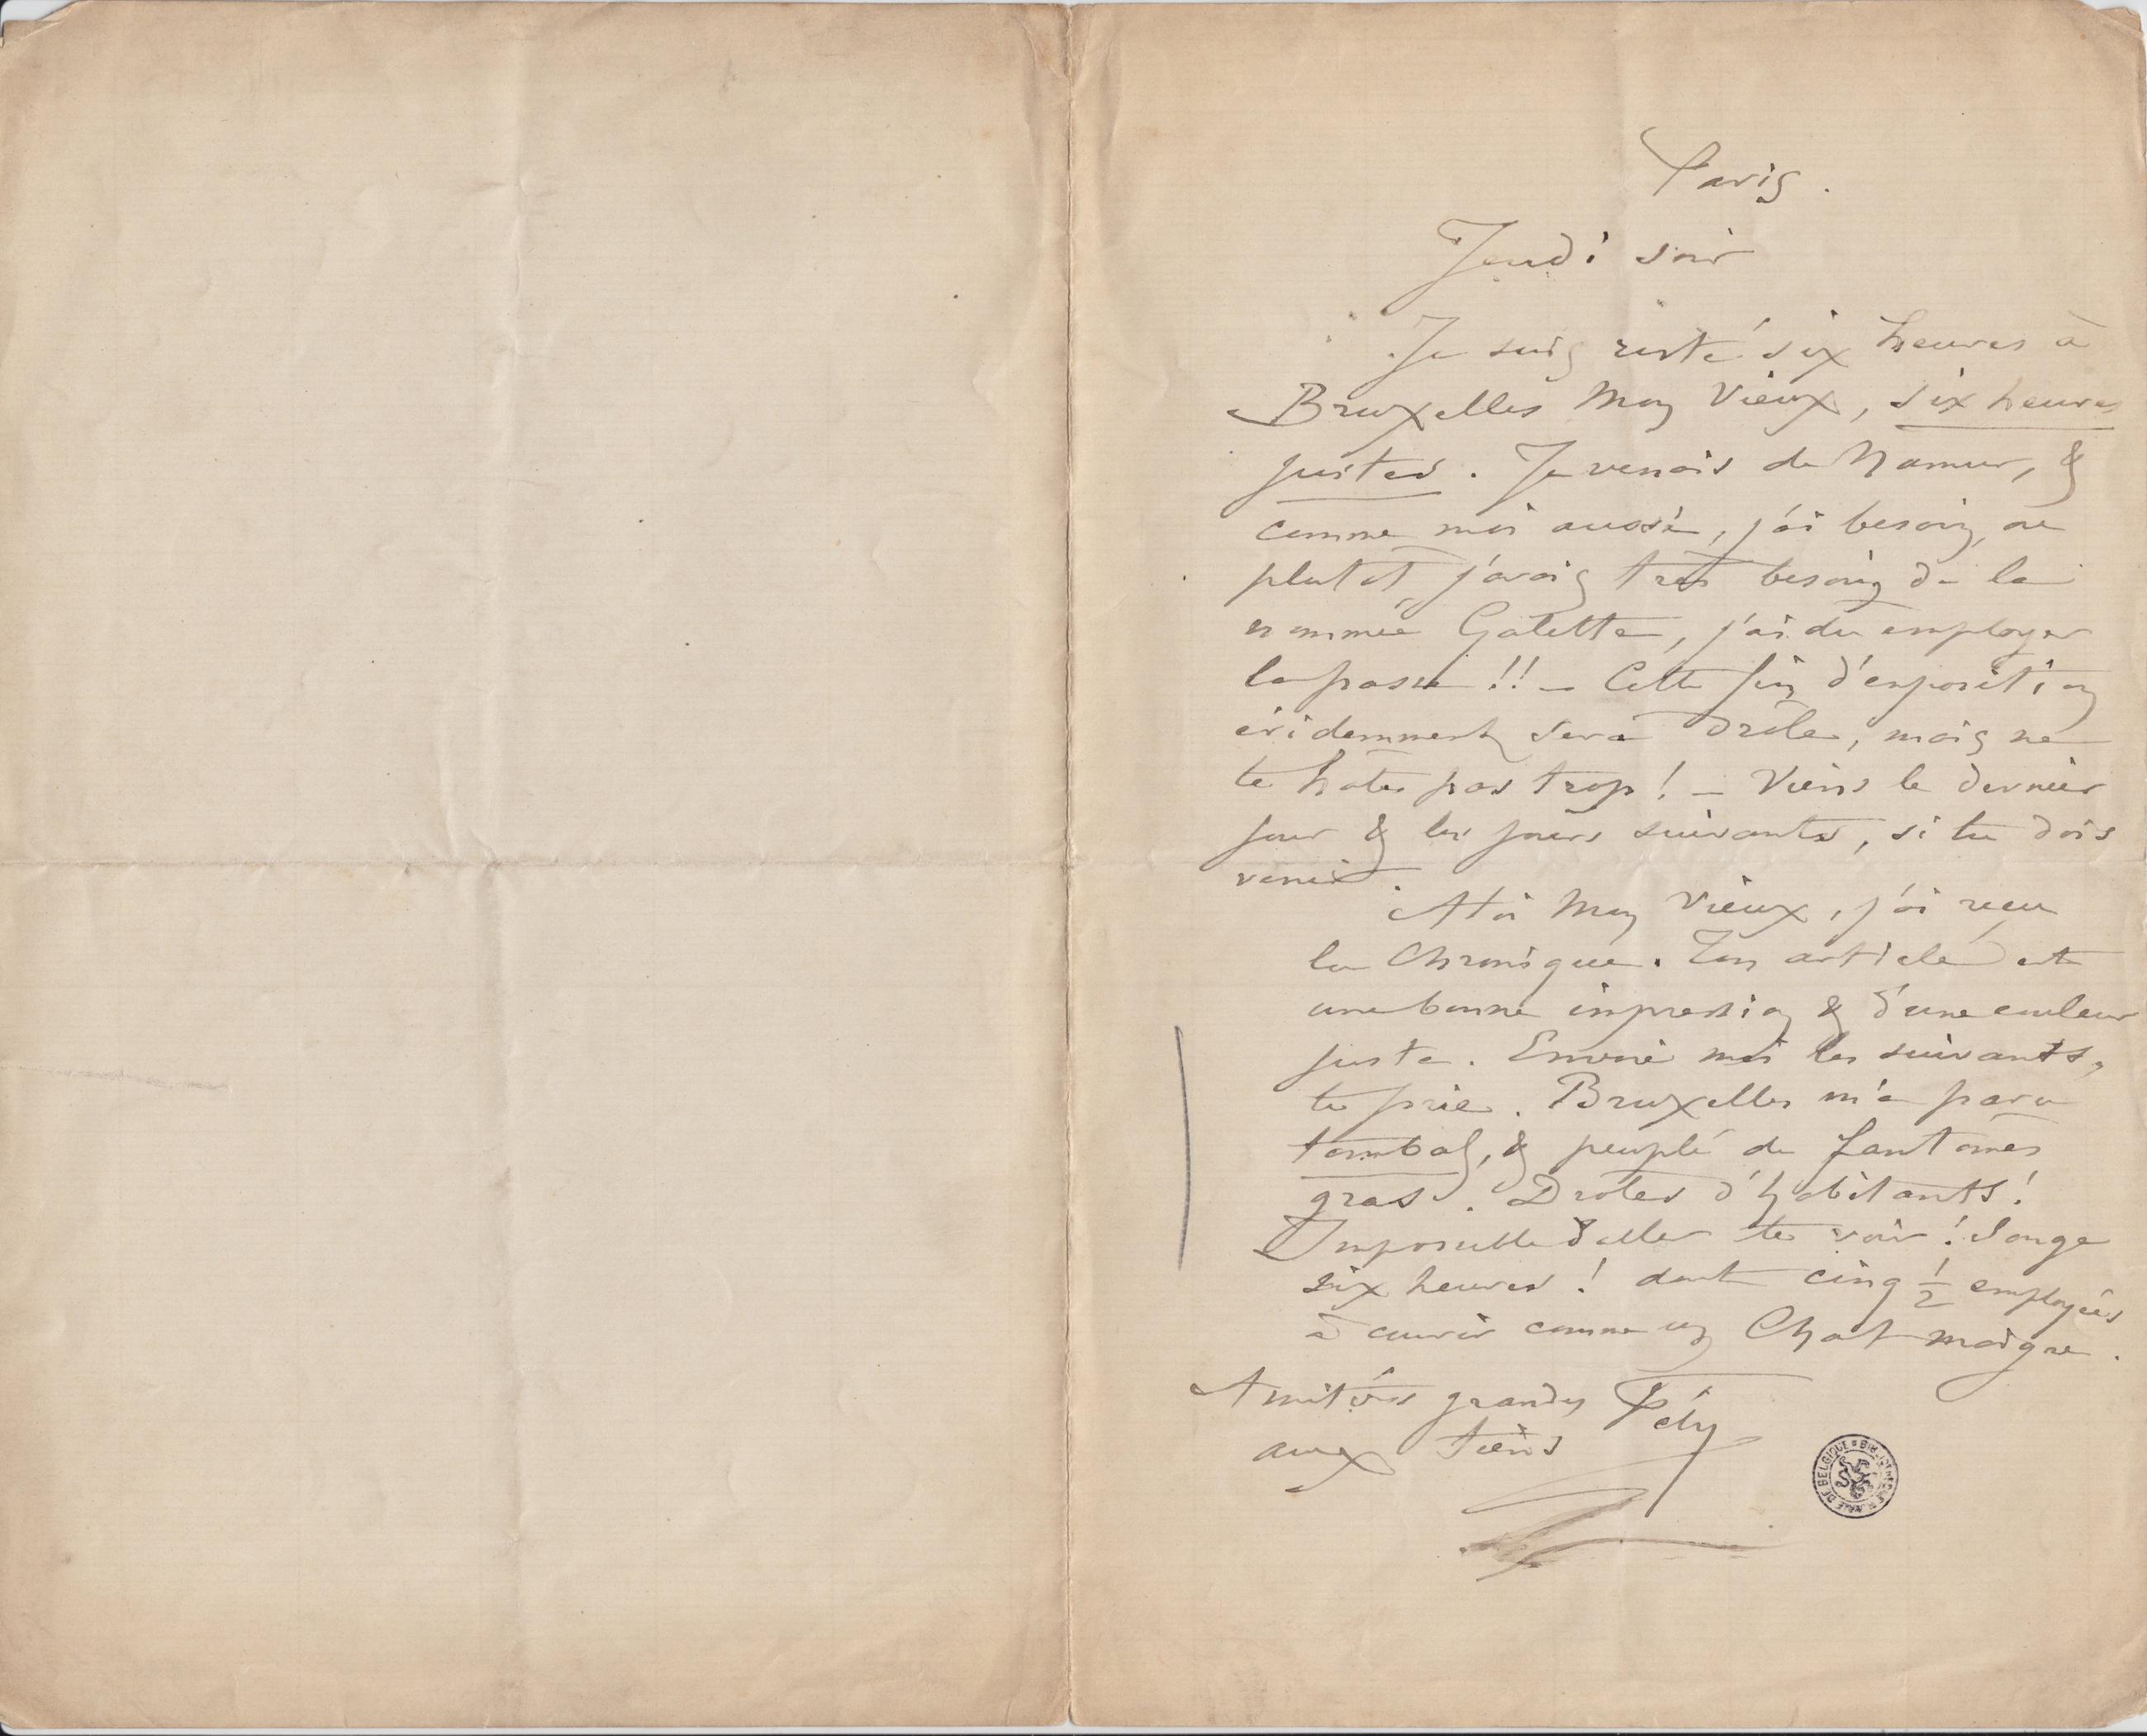 Paris.
Jeudi soir
Je suis resté six heures à
Bruxelles Mon Vieux, six heures
justes. Je venais de Namur, &
comme moi aussi, j'ai besoin, ou
plutot j'avais très besoin de la
nommée Galette, j'ai du employer
la passe !! – Cette fin d'exposition
évidemment sera drôle, mais ne
te hates pas trop ! – Viens le dernier
jour & les jours suivants, si tu dois
venir.
A toi Mon Vieux, j'ai reçu
la Chronique. Ton article est
une bonne impression & d'une couleur
juste. Envoie moi les suivants,
te prie. Bruxelles m'a paru
tombal, & peuplé de fantômes
gras. Drôles d'habitants !
Impossible d'aller te voir ! Songe
six heures ! dont cinq 1/2 employées
à courir comme un Chat maigre.
Amitiés grandes Fély
aux tiens
BIBLIOTHEQUE ROYALE DE BELGIQUE